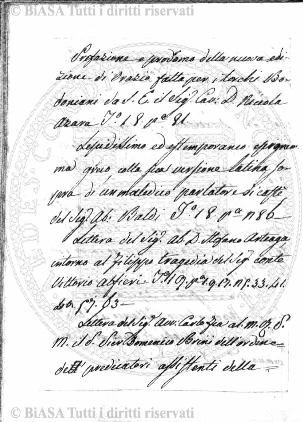 © BiASA Tutti i diritti riservati
Prefazione e proemio della nuova edi
zione di Orazio fatta per i torchi Bo
doniani da S. E. il Sig. Cav. D. Niccola
Azara Tº 18 pª 81
Lepidissimo ed estemporaneo epigram
ma greco colla sua versione latina so
pra di un maledico parlatore di caffè
del Sig. Ab. Baldi Tº 18 pª n 86
Lettera del Sig. Ab. D. Stefano Arteaga
intorno al Filippo tragedia del Sig. Conte
Vittorio Alfieri Tº 19 33. 41.
57. 63
Lettera del Sig. Avv. Carlo Fea al m. R. P.
M. il P. Domenico dell'ordine
de predicatori assistenti della
© BiASA Tutti i diritti riservati